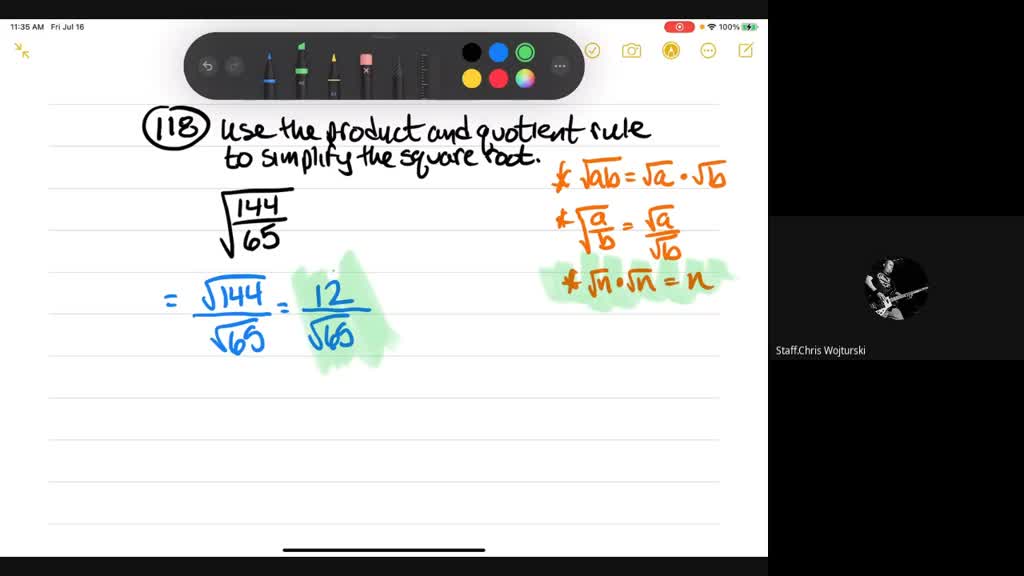 11:35 AM Fri Jul 16
100%
118 use the product and quotient rule
to simplify the square root.
√(144/65)
* √ab = √a · √b
* √(a/b) = √a/√b
* √n · √n = n
= √144/√65 = 12/√65
Staff.Chris Wojturski